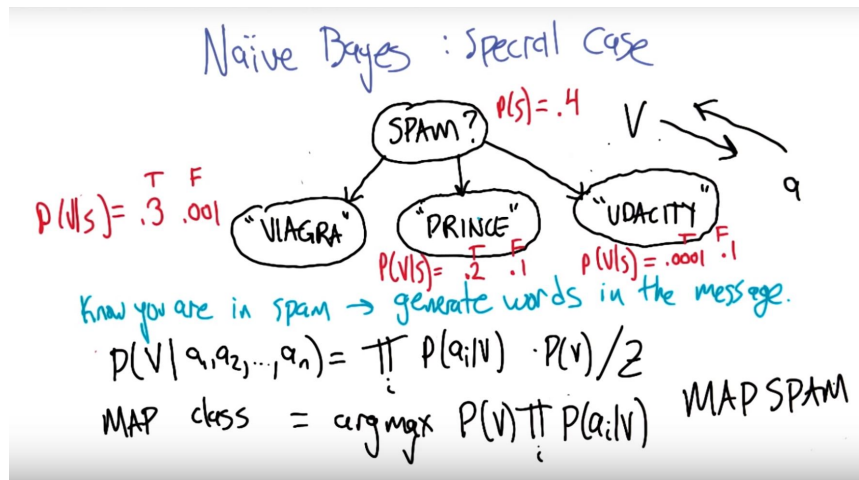 Naïve Bayes : Special Case
SPAM?
P(S)= .4
V
a
T F
P(V|S)= .3 .001
"VIAGRA"
"PRINCE"
"UDACITY"
T F
P(V|S)= .2 .1
T F
P(V|S)= .0001 .1
Know you are in spam → generate words in the message.
P(V|a₁,a₂,...,aₙ)= ∏ᵢ P(aᵢ|V) · P(V)/Z
MAP class = argmax P(V)∏ᵢ P(aᵢ|V)
MAP SPAM